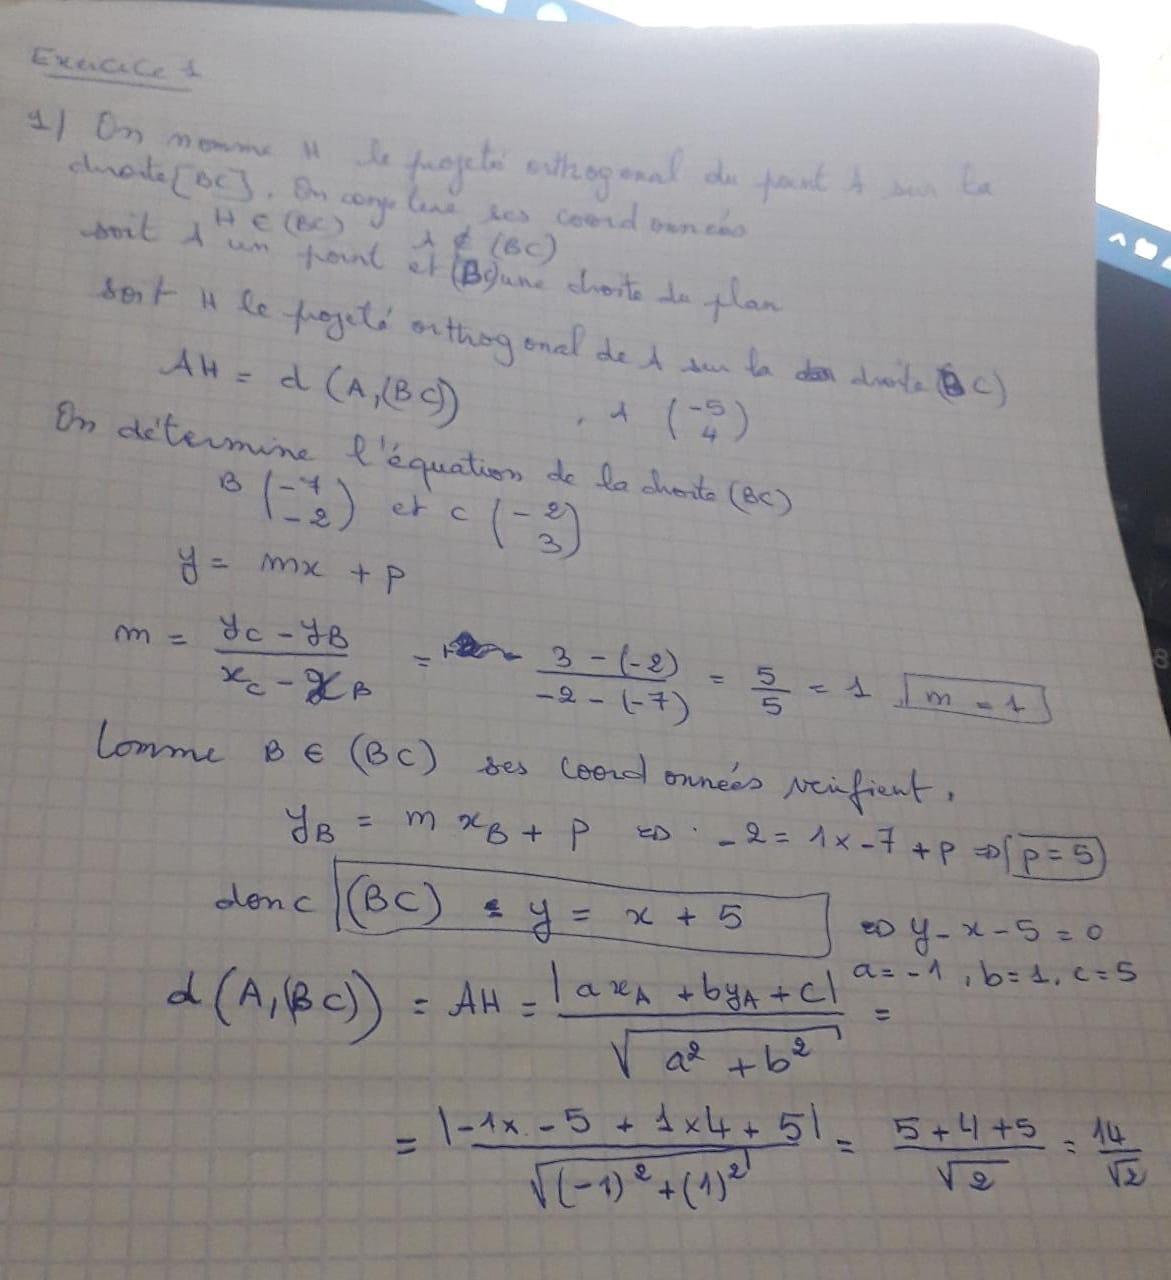 Exercice 1
1) On nomme H le projeté orthogonal du point A sur la
droite [BC]. On ses coordonnées
H ∈ (BC) A ∉ (BC)
soit A un point et (BC) une droite du plan
soit H le projeté orthogonal de A sur la droite (BC)
AH = d (A,(BC)) , A (-5 4)
On détermine l'équation de la droite (BC)
B (-7 -2) et C (-2 3)
y = mx + p
m = yC - yB / xC - xB = 3 - (-2) / -2 - (-7) = 5/5 = 1 m = 1
Comme B ∈ (BC) ses coordonnées vérifient,
yB = m xB + p ⇔ -2 = 1x-7 + p ⇒ p = 5
donc (BC) : y = x + 5 ⇔ y - x - 5 = 0
a = -1, b = 1, c = 5
d (A,(BC)) = AH = |a xA + byA + c| / √a² + b² =
= |-1x - 5 + 1x4 + 5| / √(-1)² + (1)² = 5 + 4 + 5 / √2 = 14/√2